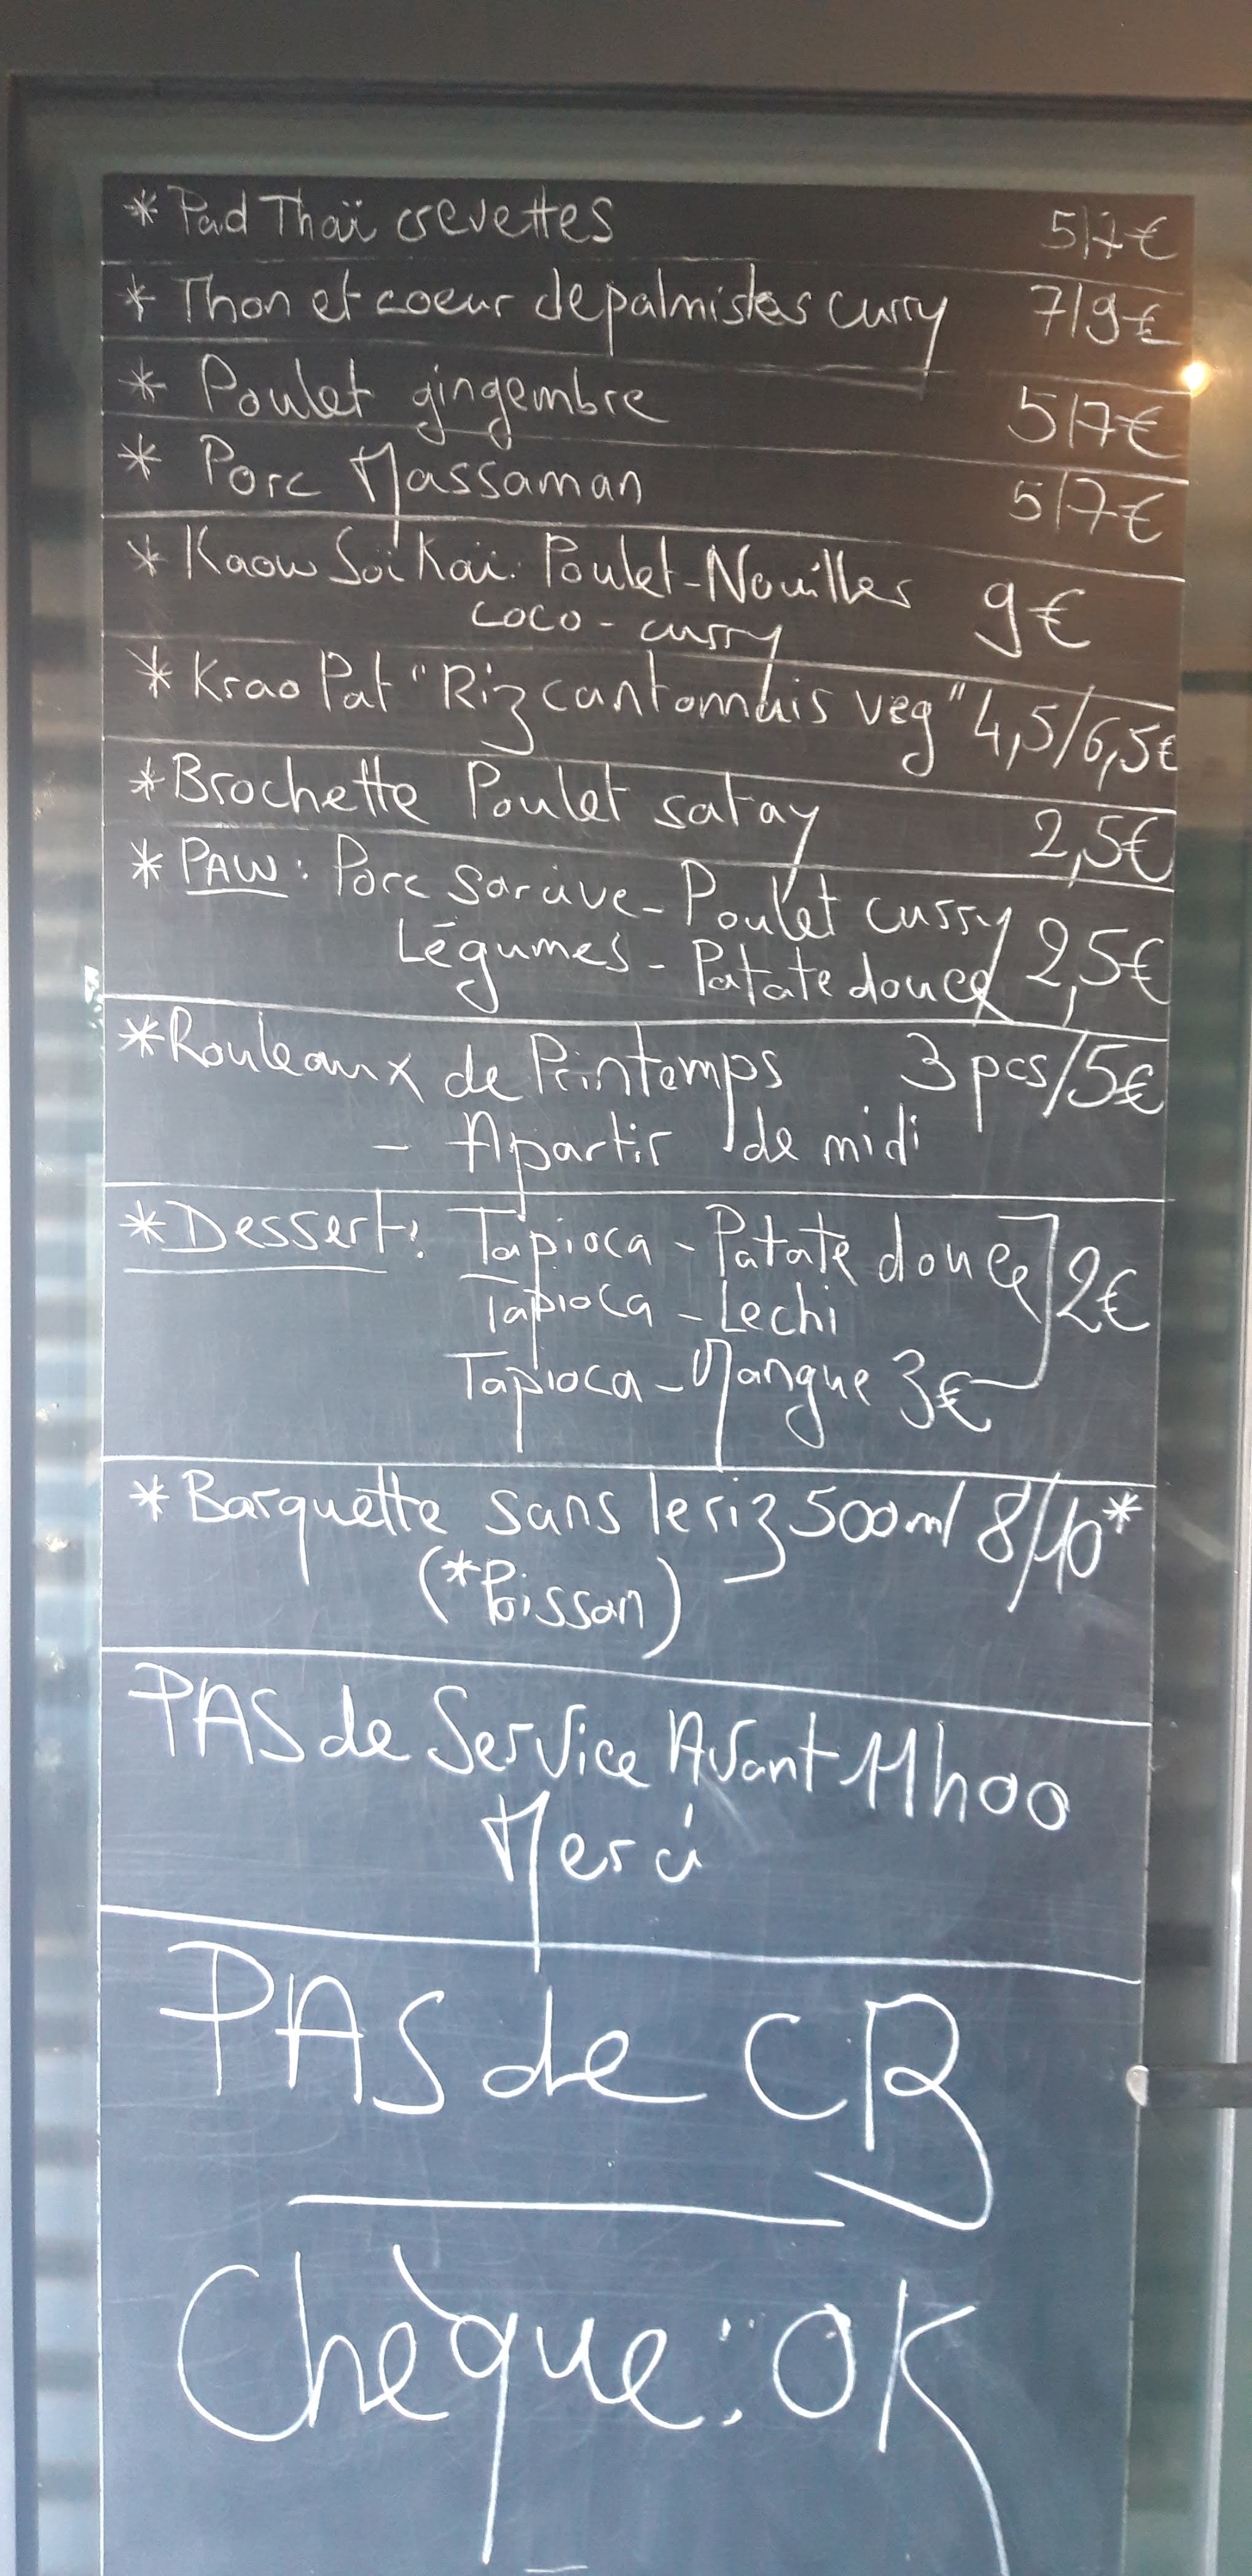 * Pad Thaï crevettes 5/7€
* Thon et coeur de palmistes curry 7/9€
* Poulet gingembre 5/7€
* Porc Massaman 5/7€
* Kaow Soï Kaï: Poulet-Nouilles 9€
coco - curry
* Krao Pat "Riz cantonnais veg" 4,5/6,5€
* Brochette Poulet satay 2,5€
* PAW: Porc sarcive - Poulet curry
Légumes - Patate douce 2,5€
* Rouleaux de Printemps 3 pcs/5€
- A partir de midi
* Dessert: Tapioca - Patate douce 2€
Tapioca - Lechi
Tapioca - Mangue 3€
* Barquette sans le riz 500ml 8/10*
(*Poisson)
PAS de Service Avant 11h00
Merci
PAS de CB
Chèque: OK